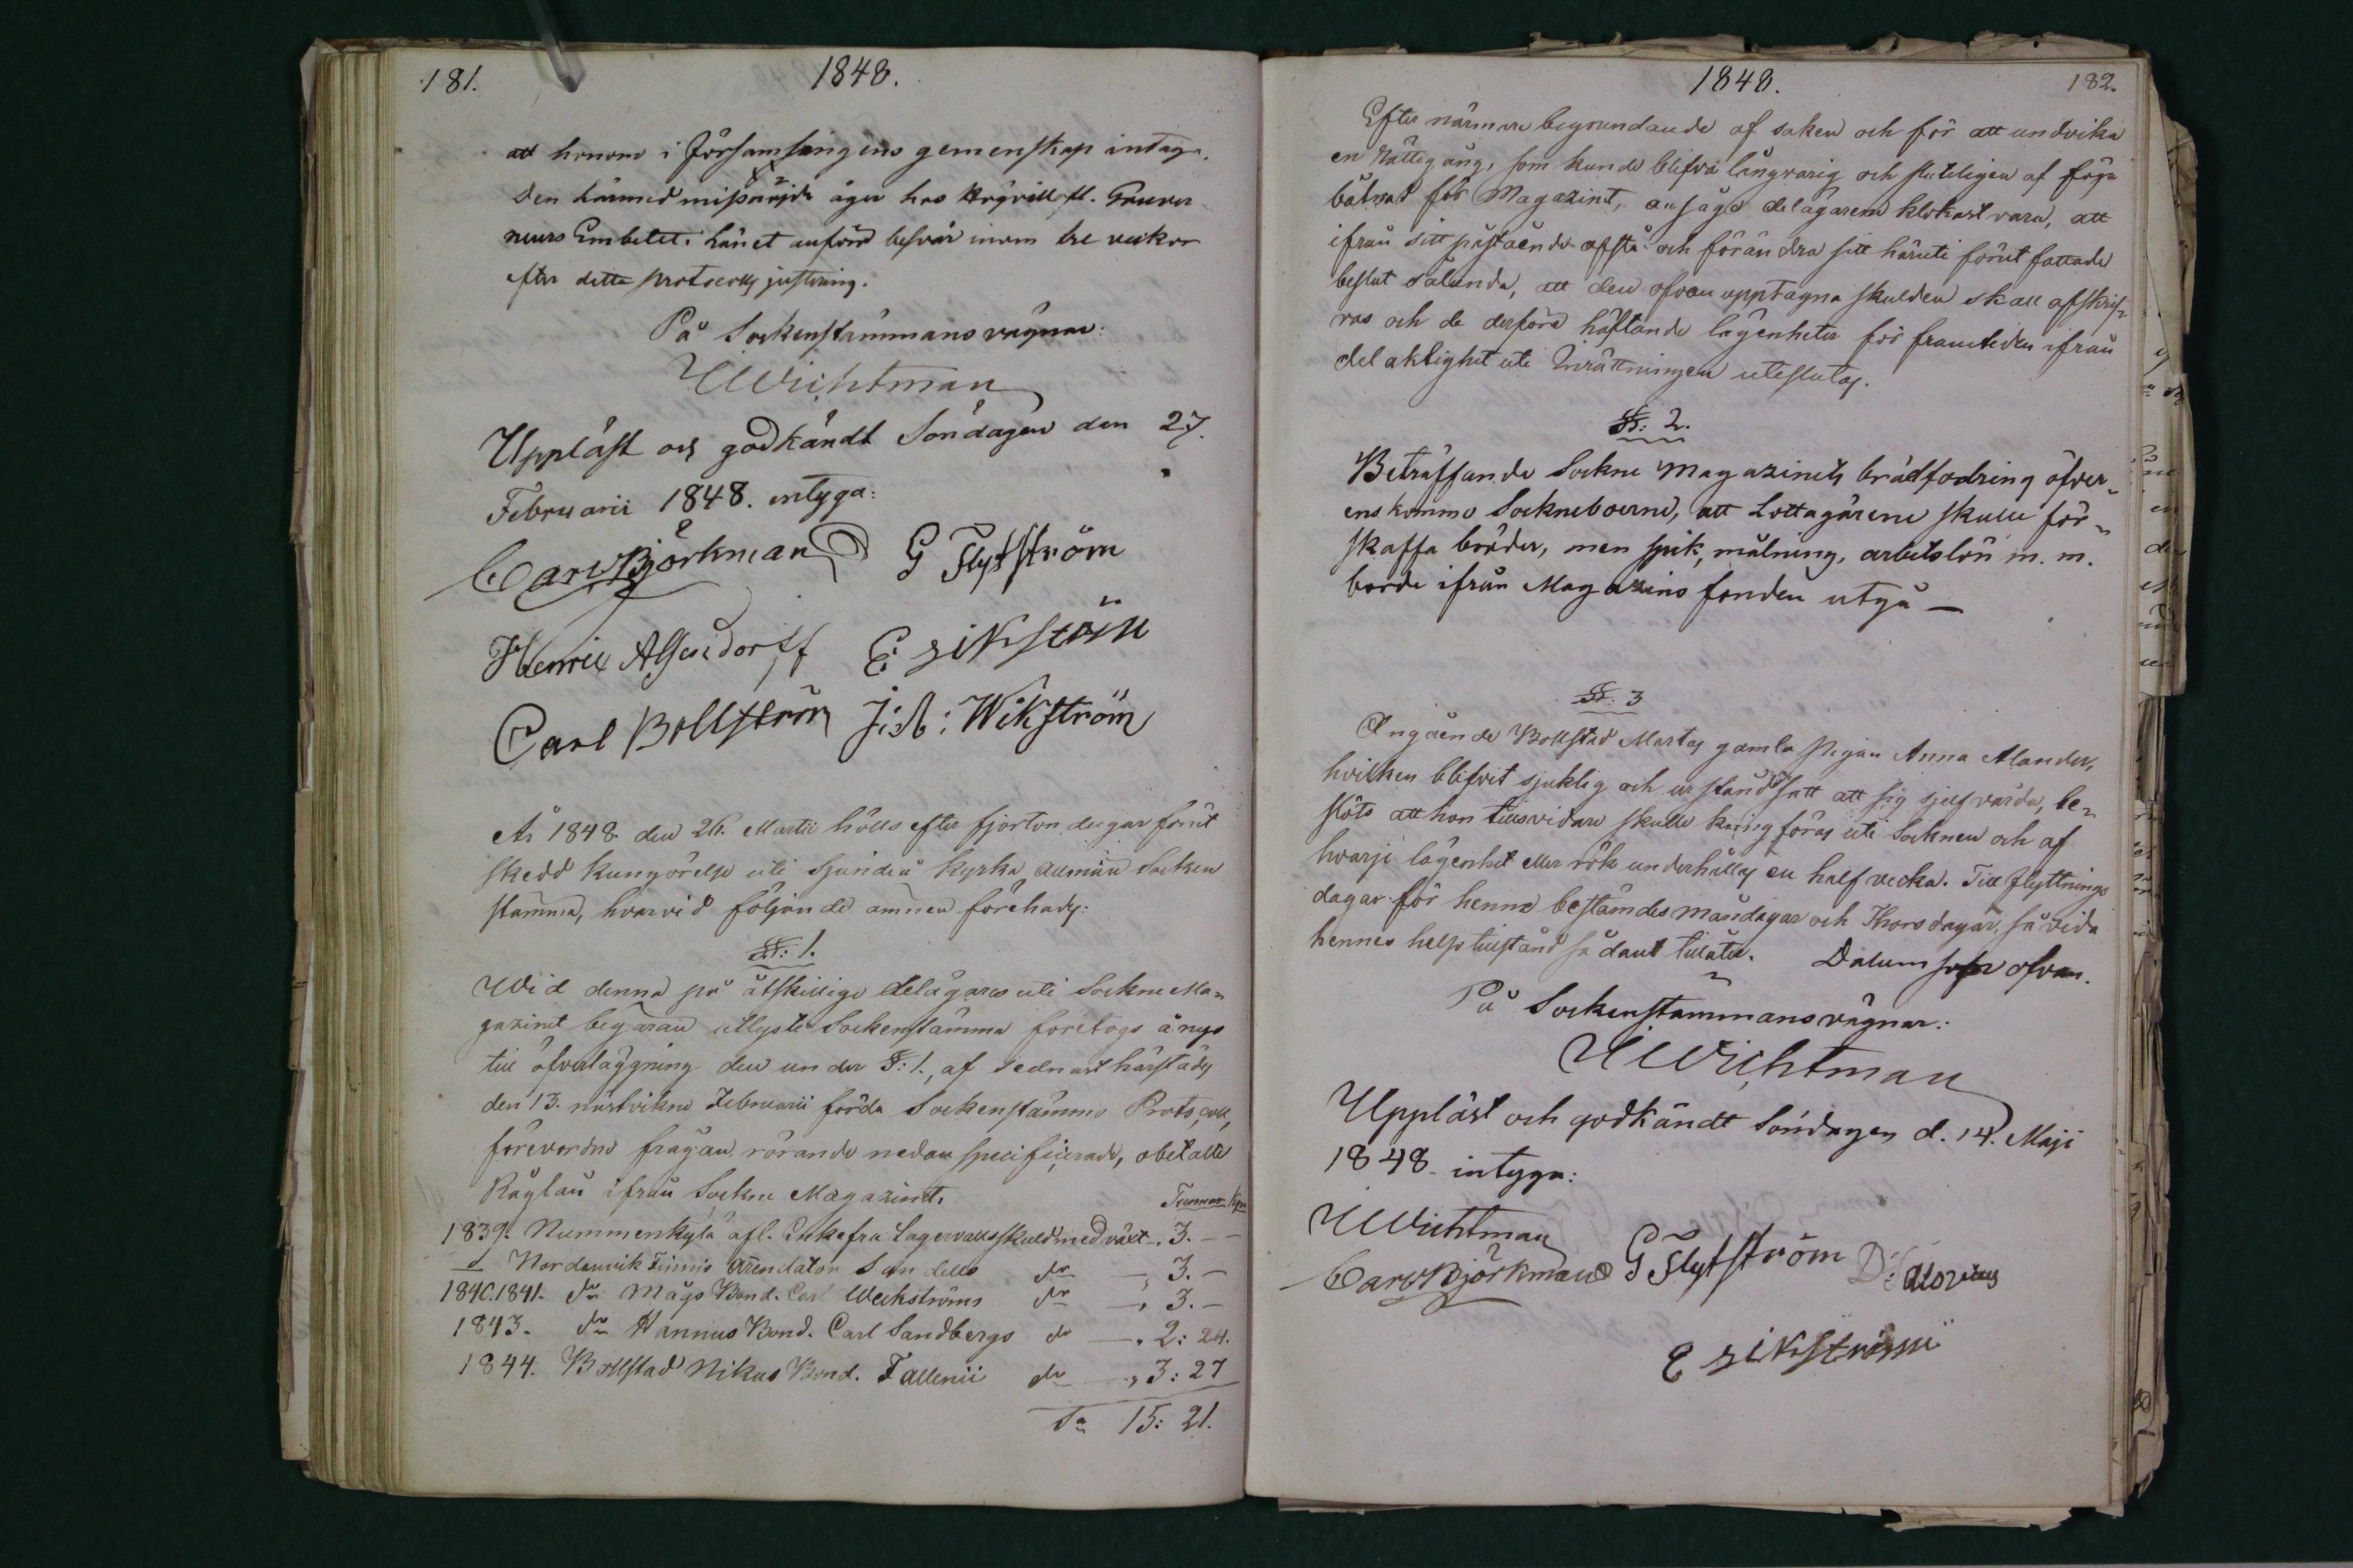 181.
1848.
att honom i Församlingens gemenskap intaga.
Den härmed missnöjde äger hos Högvällofl. Guver-
neurs Embetet i Länet anföra besvär inom tre veckor
efter detta protocolls justering.
På Sockenstämmans vägnar:
Wichtman
Uppläst och godkändt Söndagen den 27.
Februarii 1848. intyga:
Carl Björkman G Flytström
Henric E Sikström
Carl Bollström J: A: Wikström
År 1848 den 26. Martii hölls efter fjorton dagar förut
skedd kungörelse uti Sjundeå Kyrka allmän Socken
stämma, hvarvid följande ämnen förehades:
§: 1.
Wid denna på åtskillige delägares uti Sockne Ma-
gazinet begäran utlyste Sockenstämma företogs ånyo
till öfverläggning den under §: 1., af sednast härstädes
den 13. nästvikne Februarii förda Sockenstämmo Protocoll,
förevordne frågan rörande nedan specificerade, obetalte
Råglån ifrån Sockne Magazinet.
Tunnor Kpr
1839. Nummenkylä afl. Enkefru Lagervalls skuld med växt „ 3. –
" Nordanvik Finnis Arendator Sandells do „ 3. –
1840.1841. do Mågs Bond. Carl Weckströms do „ 3. –
1843. do Hannus Bond. Carl Sandbergs do „ 2: 24.
1844. Bollstad Nikus Bond. Fallenii do „ 3: 27
Sa 15: 21.
1848.
182.
Efter närmare begrundande af saken och för att undvika
en Rättegång, som kunde blifva långvarig och slutligen af föga
båtnad för Magazinet, ansågo delägarene klokast vara, att
ifrån sitt påstående afstå och förändra sitt häruti förut fattade
beslut sålunda, att den ofvan upptagna skulden skall afskrif-
vas och de derföre häftande lägenheter för framtiden ifrån
delaktighet uti Inrättningen uteslutas.
§: 2.
Beträffande Sockne Magazinets brädfodring öfver-
enskommo Sockneboerne, att Lottagarene skulle för-
skaffa bräder, men spik, målning, arbetslön m. m.
borde ifrån Magazins fonden utgå —
§: 3
Angående Bollstad Martas gamla pigan Anna Alander,
hvilken blifvit sjuklig och urståndsatt att sig sjelf vårda, be-
slöts att hon tillsvidare skulle kringföras uti Socknen och af
hvarje lägenhet eller rök underhållas en half vecka. Till flyttnings
dagar för henne bestämdes måndagar och Thorsdagar, så vida
hennes helsotillstånd sådant tillåter. Datum som ofvan.
På Sockenstämmans vägnar:
Wichtman
Uppläst och godkändt Söndagen d. 14. Maji
1848 intyga:
Wichtman
Carl Björkman G Flytström
E Sikström